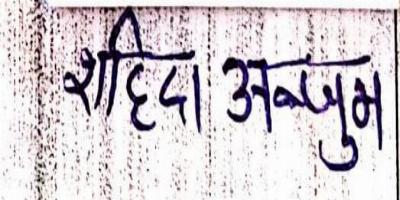 शहिदा अन्जुम